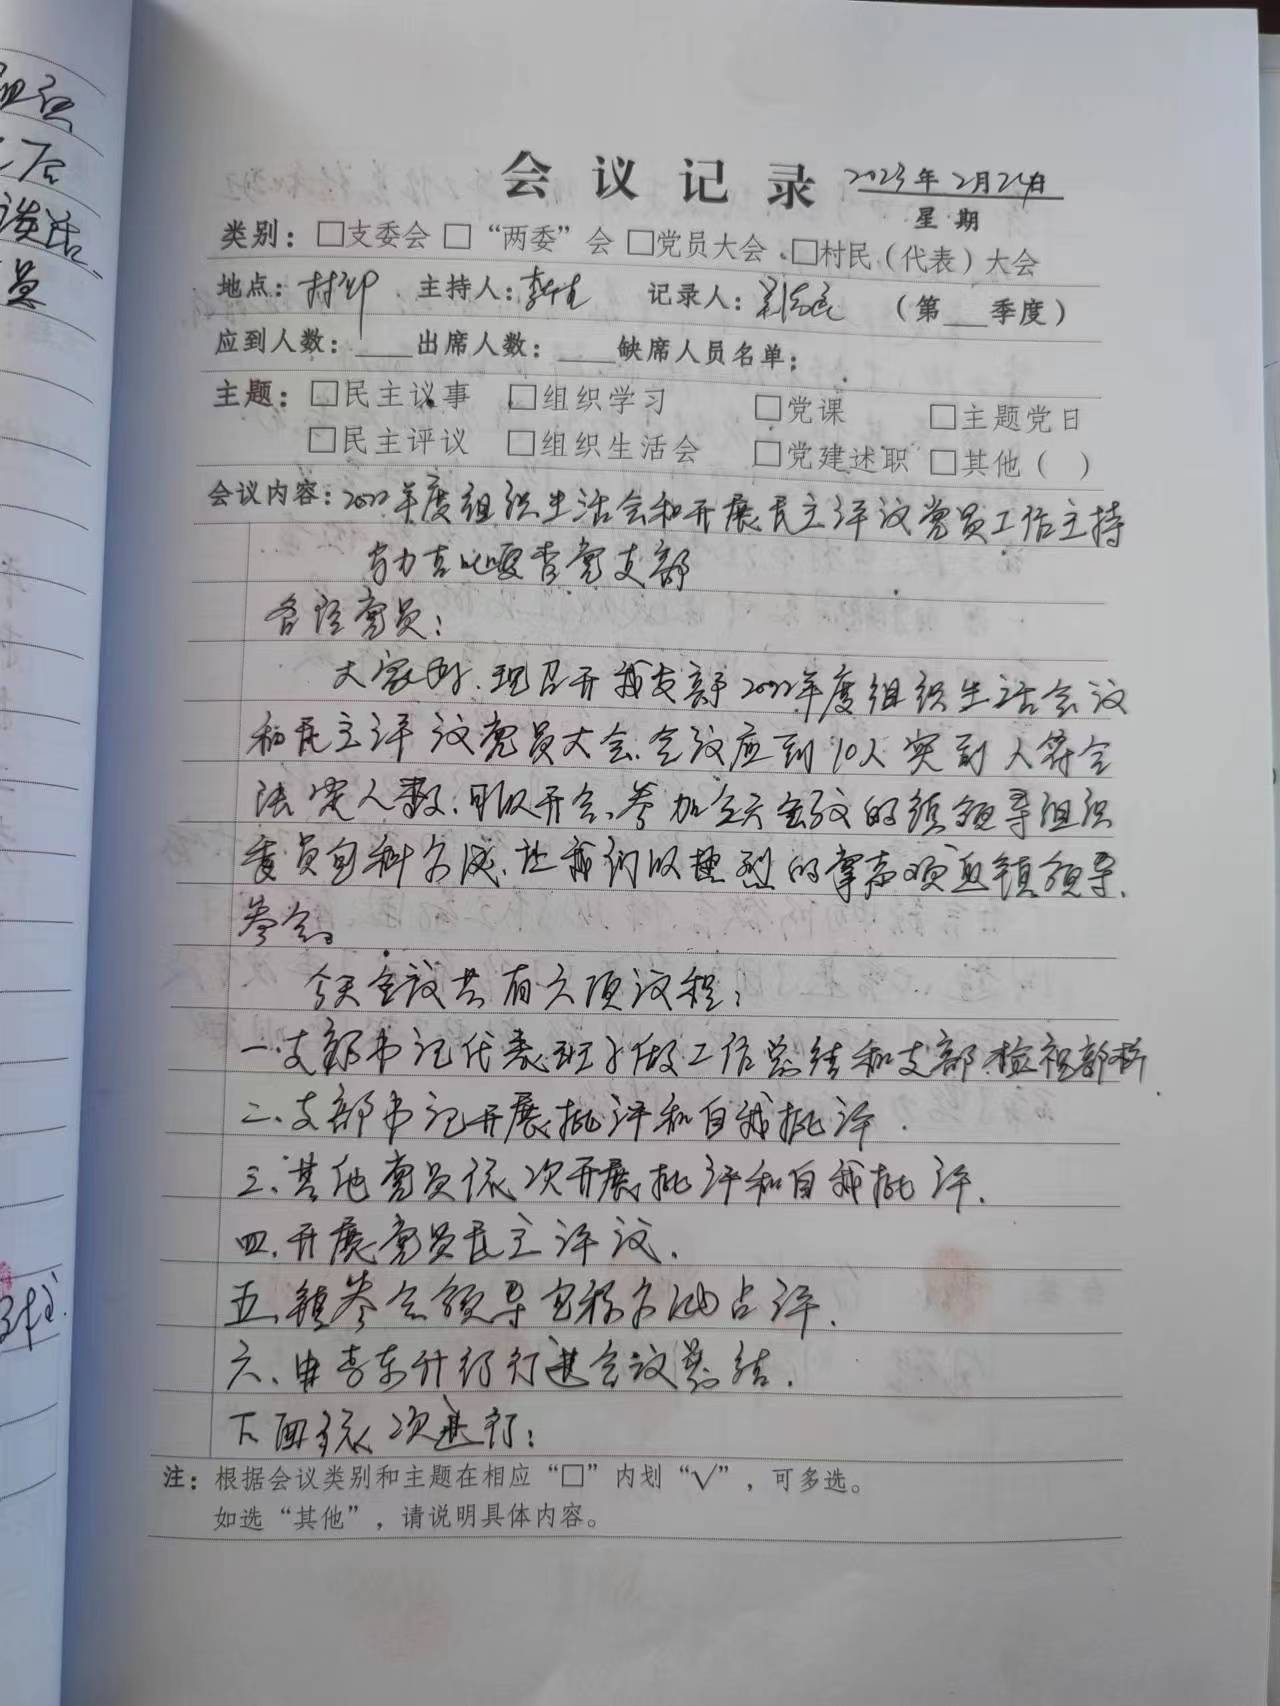 会议记录 2023年2月24日
星期
类别：□支委会 □“两委”会 □党员大会 □村民（代表）大会
地点：村部 主持人： 记录人： （第___季度）
应到人数：____出席人数：____缺席人员名单：
主题：□民主议事 □组织学习 □党课 □主题党日
□民主评议 □组织生活会 □党建述职 □其他（ ）
会议内容：2022年度组织生活会和开展民主评议党员工作主持
党支部
各位党员：
大家好、现召开我支部2022年度组织生活会议
和民主评议党员大会、会议应到10人实到 人符合
法定人数、可以开会、参加今天会议的镇领导组织
委员包科尔沁、让我们以热烈的掌声欢迎镇领导、
参会。
今天会议共有六项议程：
一、支部书记代表班子做工作总结和支部检视剖析
二、支部书记开展批评和自我批评.
三、其他党员依次开展批评和自我批评.
四、开展党员民主评议.
五、镇参会领导 点评.
六、由 进会议总结.
下面依次进行：
注：根据会议类别和主题在相应“□”内划“√”，可多选。
如选“其他”，请说明具体内容。